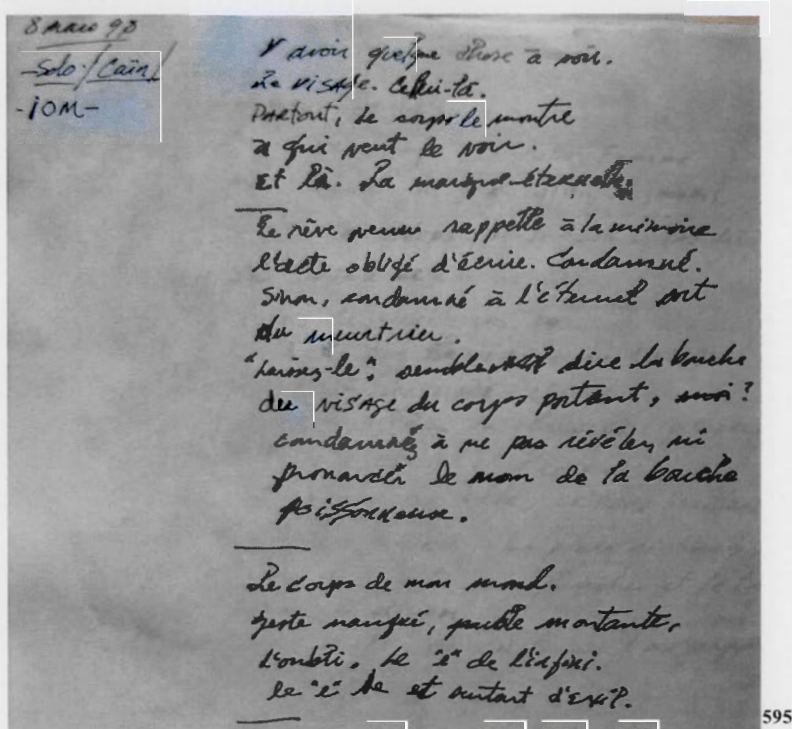 8 mars 98
- Solo / Caïn /
- IOM -
Y avoir quelque chose à voir.
Le visage. Celui-là.
Partout, le corps le montre
à qui veut le voir.
Et là. La marque éternelle.
Le rêve venu rappelle à la mémoire
l'acte obligé d'écrire. Condamné.
Sinon, condamné à l'éternel sort
du meurtrier.
"Laissez-le", semble dire la bouche
du visage du corps portant,
condamné à ne pas révéler, ni
prononcer le nom de la bouche
poissonneuse.
Le corps de mon
geste manqué, montante,
L'oubli. Le "i" de l'infini.
le "i" de et autant d'exil.
595